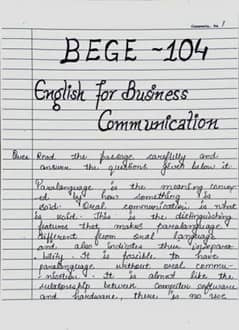 BEGE - 104
English for Business
Communication
Ques Read the passage carefully and
answer the questions given below it
Paralanguage is the meaning convey-
ed by how something is
said. Oral communication is what
is said. This is the distinguishing
features that makes paralanguage
different from oral language
and also indicates their insepara-
bility. It is possible to have
paralanguage without oral commu-
nication. It is almost like the
relationship between computer software
and hardware, there is no use